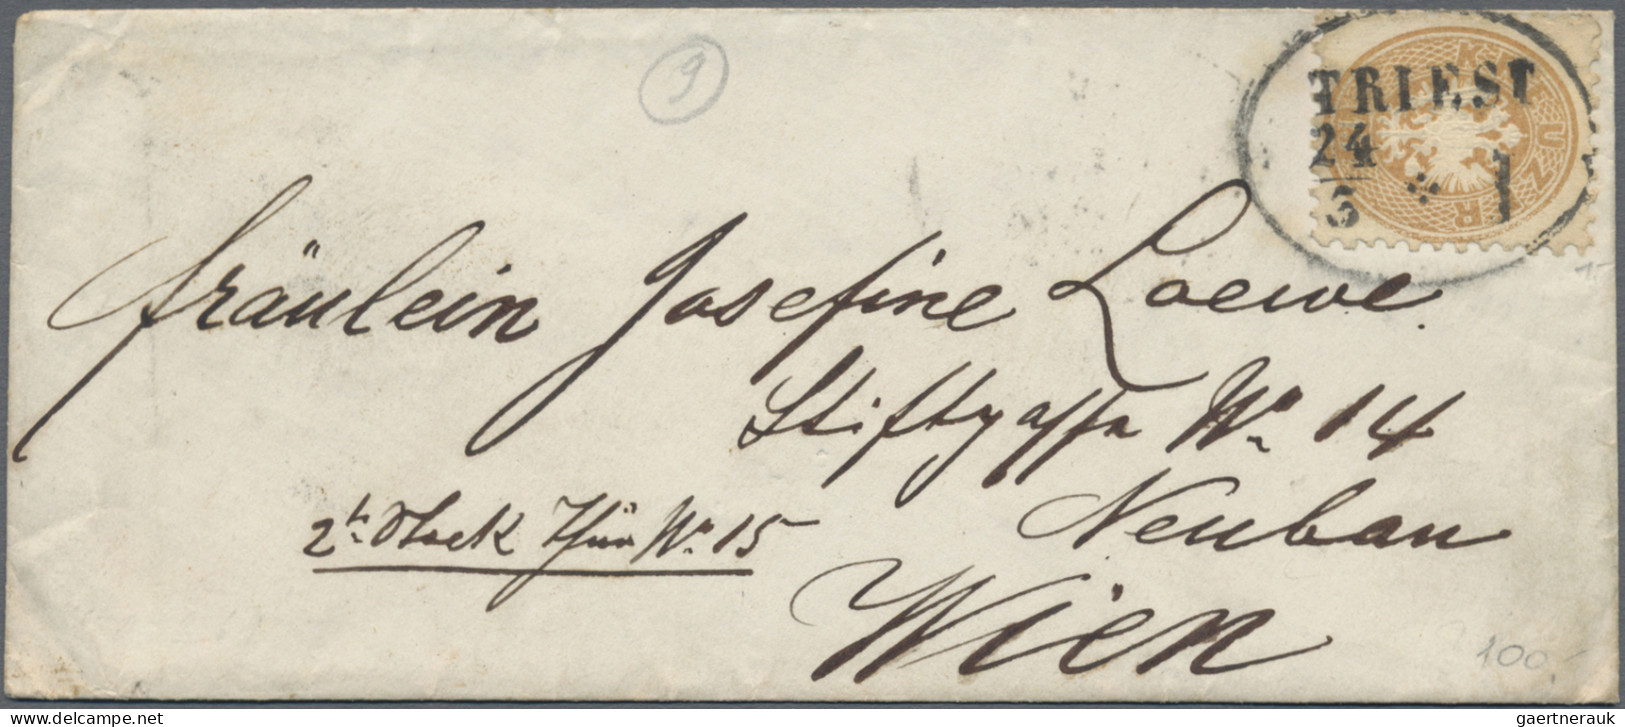 9
KREUZER
TRIEST
24
5
1
15
Fräulein Josefine Loewe.
Stiftgasse No 14
2tr Stock Thür No 15
Neubau
Wien
100.-
gaertnerauk